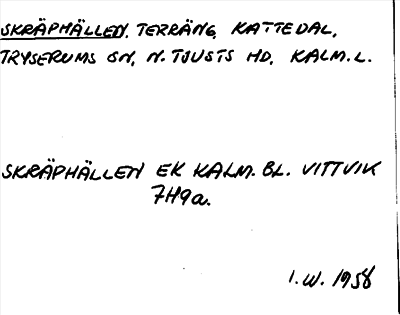 SKRÄPHÄLLEN, TERRÄNG, KATTEDAL,
TRYSERUMS SN, N. TJUSTS HD, KALM. L.
SKRÄPHÄLLEN EK KALM. BL. VITTVIK
7H9a.
I. W. 1958